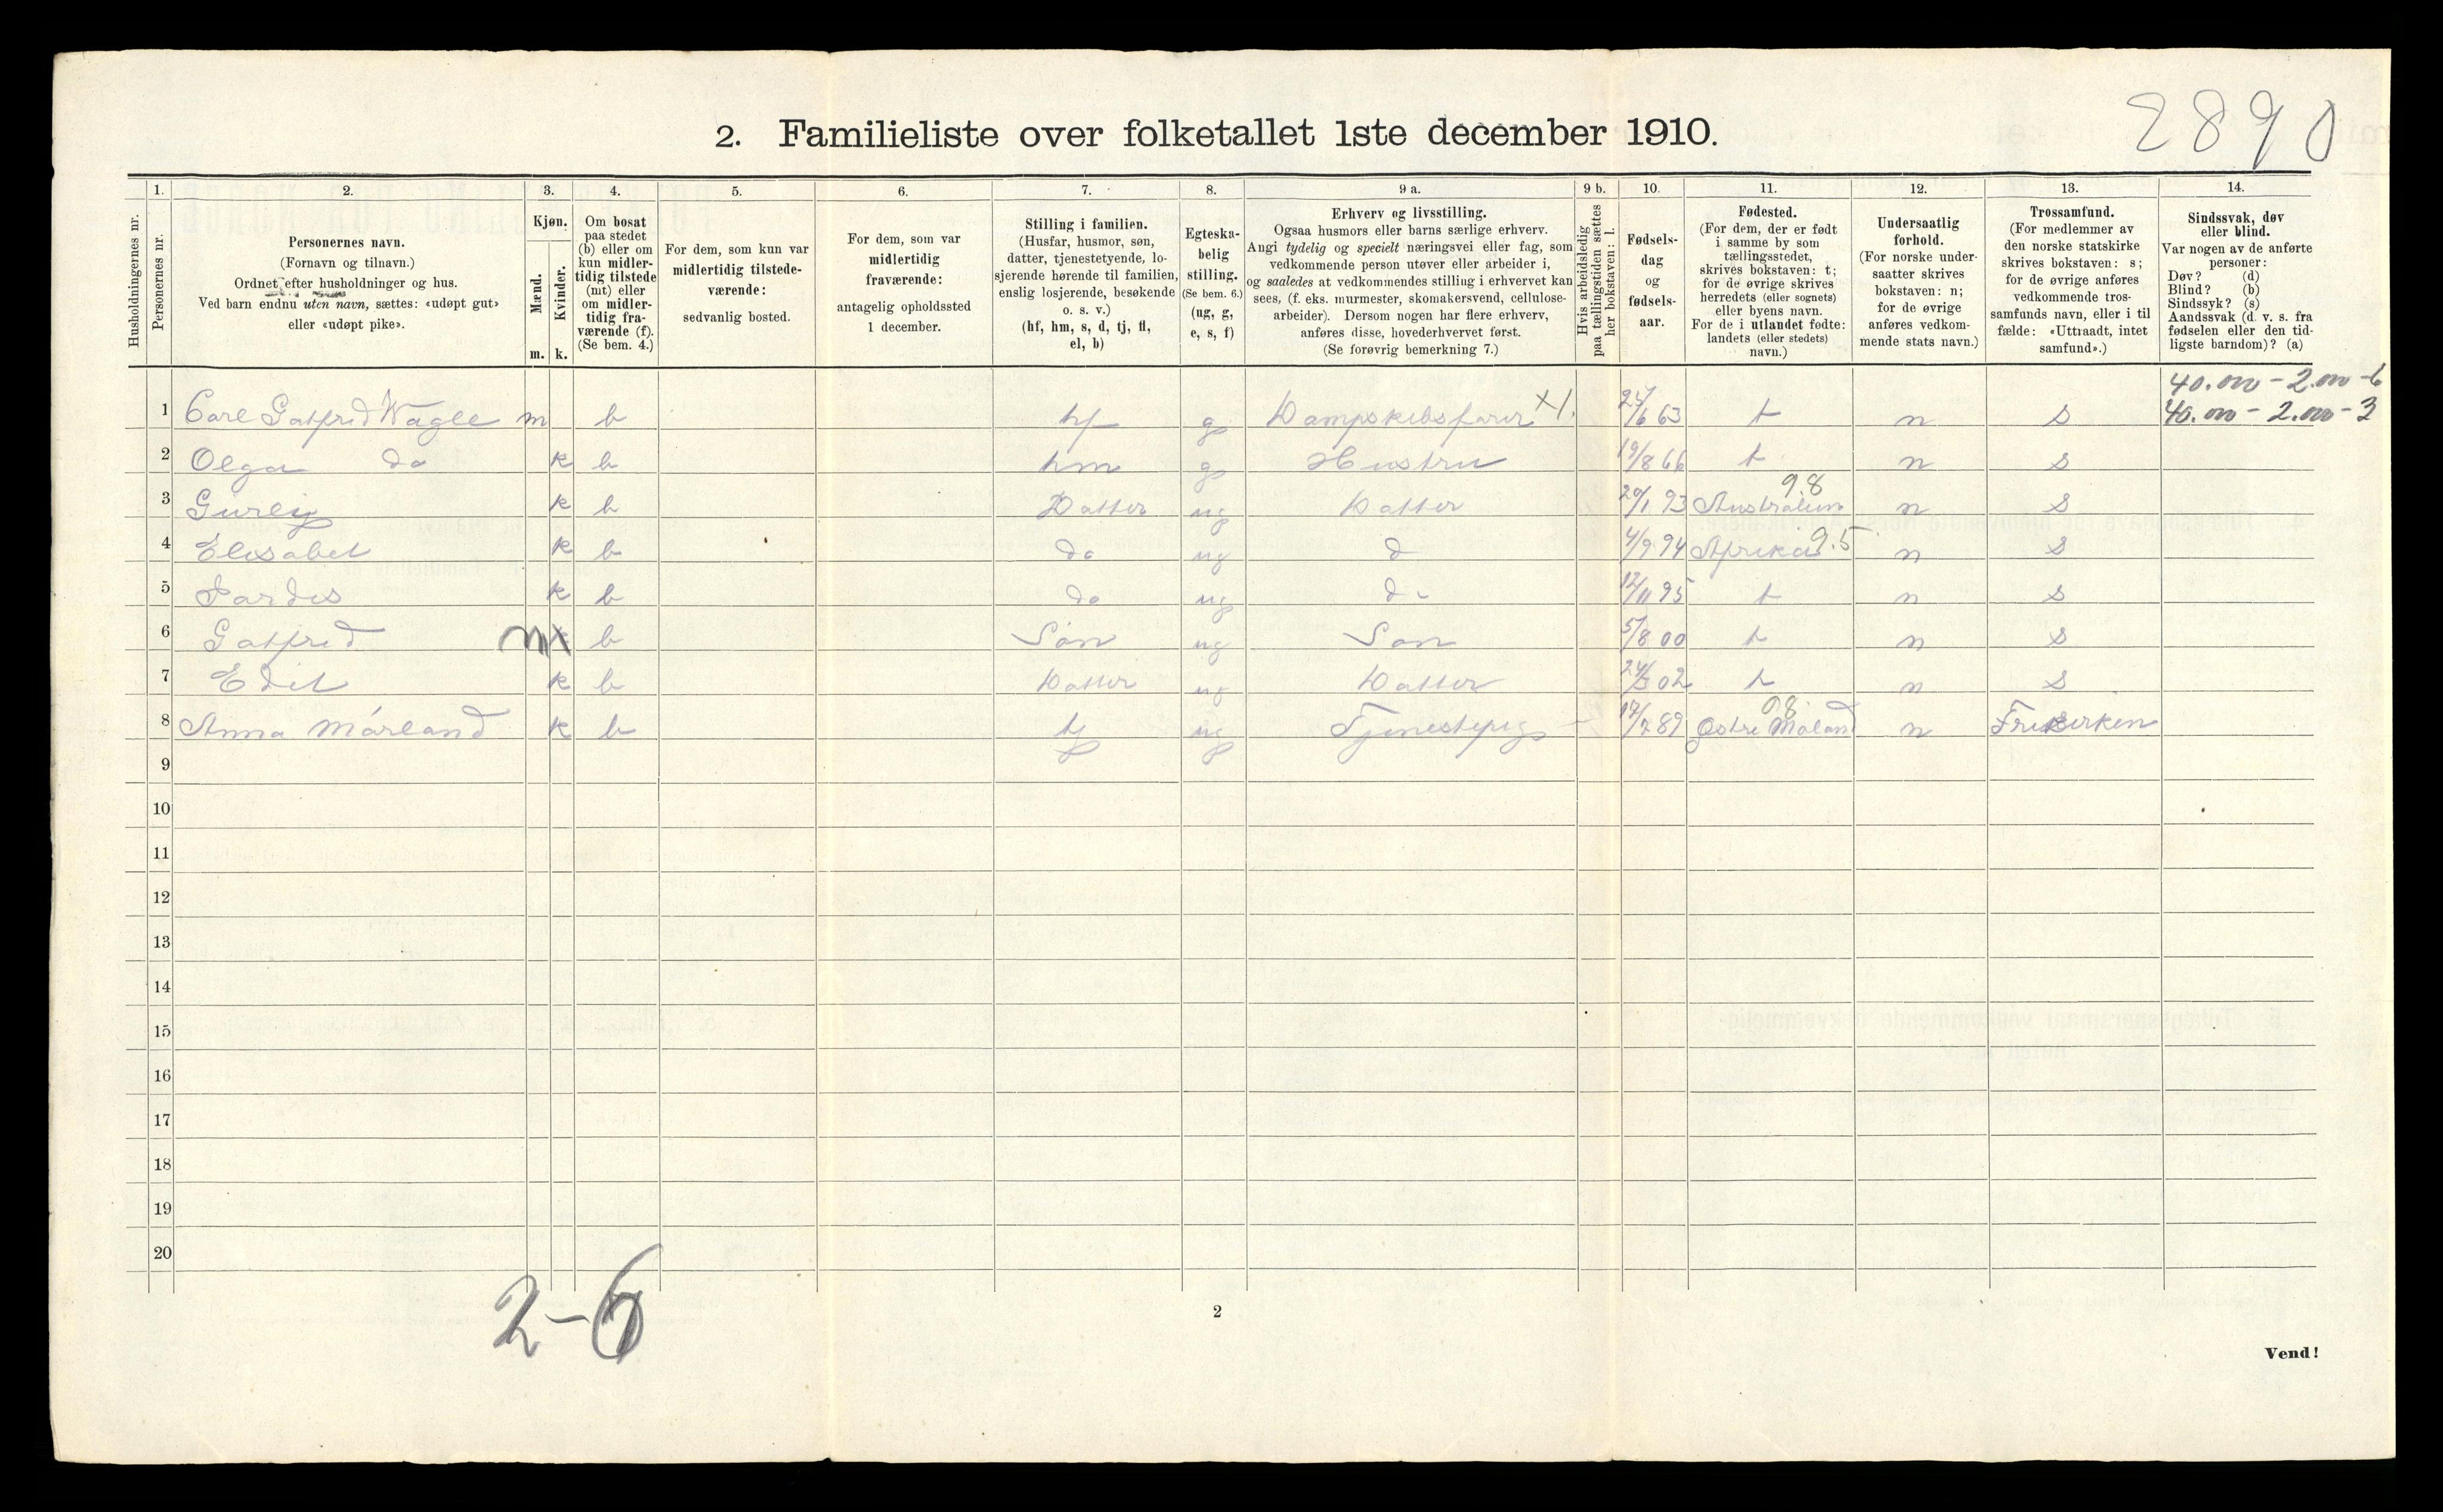 2890
2. Familieliste over folketallet 1ste december 1910.
Husholdningernes nr.
1. Personernes nr.
2. Personernes navn. (Fornavn og tilnavn.) Ordnet efter husholdninger og hus. Ved barn endnu uten navn, sættes: «udøpt gut» eller «udøpt pike».
3. Kjøn. Mænd. m. Kvinder. k.
4. Om bosat paa stedet (b) eller om kun midlertidig tilstede (mt) eller om midlertidig fraværende (f). (Se bem. 4.)
5. For dem, som kun var midlertidig tilstedeværende: sedvanlig bosted.
6. For dem, som var midlertidig fraværende: antagelig opholdssted 1 december.
7. Stilling i familien. (Husfar, husmor, søn, datter, tjenestetyende, losjerende hørende til familien, enslig losjerende, besøkende o. s. v.) (hf, hm, s, d, tj, fl, el, b)
8. Egteskabelig stilling. (Se bem. 6.) (ug, g, e, s, f)
9 a. Erhverv og livsstilling. Ogsaa husmors eller barns særlige erhverv. Angi tydelig og specielt næringsvei eller fag, som vedkommende person utøver eller arbeider i, og saaledes at vedkommendes stilling i erhvervet kan sees, (f. eks. murmester, skomakersvend, cellulosearbeider). Dersom nogen har flere erhverv, anføres disse, hovederhvervet først. (Se forøvrig bemerkning 7.)
9 b. Hvis arbeidsledig paa tællingstiden sættes her bokstaven: l.
10. Fødselsdag og fødselsaar.
11. Fødested. (For dem, der er født i samme by som tællingsstedet, skrives bokstaven: t; for de øvrige skrives herredets (eller sognets) eller byens navn. For de i utlandet fødte: landets (eller stedets) navn.)
12. Undersaatlig forhold. (For norske undersaatter skrives bokstaven: n; for de øvrige anføres vedkommende stats navn.)
13. Trossamfund. (For medlemmer av den norske statskirke skrives bokstaven: s; for de øvrige anføres vedkommende trossamfunds navn, eller i tilfælde: «Uttraadt, intet samfund».)
14. Sindssvak, døv eller blind. Var nogen av de anførte personer: Døv? (d) Blind? (b) Sindssyk? (s) Aandssvak (d. v. s. fra fødselen eller den tidligste barndom)? (a)
40.000 - 2.000 - 6
1 Carl Gatfred Wagle m b hf g Dampskibsfører X1. 25/6 63 t n s 40.000 - 2.000 - 3
2 Olga do k b hm g Hustru 19/8 66 t n s
3 Gurly k b Datter ug Datter 20/1 93 Australien 9.8 n s
4 Elisabet k b do ug d 4/9 94 Afrika 9.5 n s
5 k b do ug d - 12/11 95 t n s
6 Gatfred m b Søn ug Søn 5/8 00 t n s
7 Edit k b Datter ug Datter 24/3 02 t n s
8 Anna Mårland k b tj ug Tjenestepige 17/7 89 Østre Moland 08. n Frikirken
9
10
11
12
13
14
15
16
17
18
19
20
2-6
2
Vend!